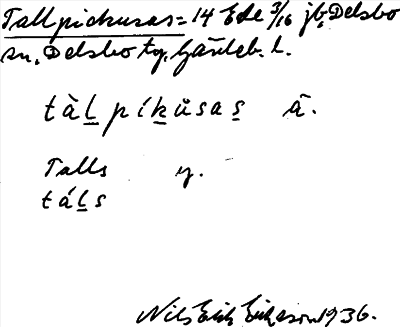 Tallpickusas = 14 Ede 3/16 jb, Delsbo
sn, Delsbo tg, Gävleb. l.
tàl̲ píḵůsas̲ ā.
Talls y.
tál̲s
Nils Erik Eriksson 1936.